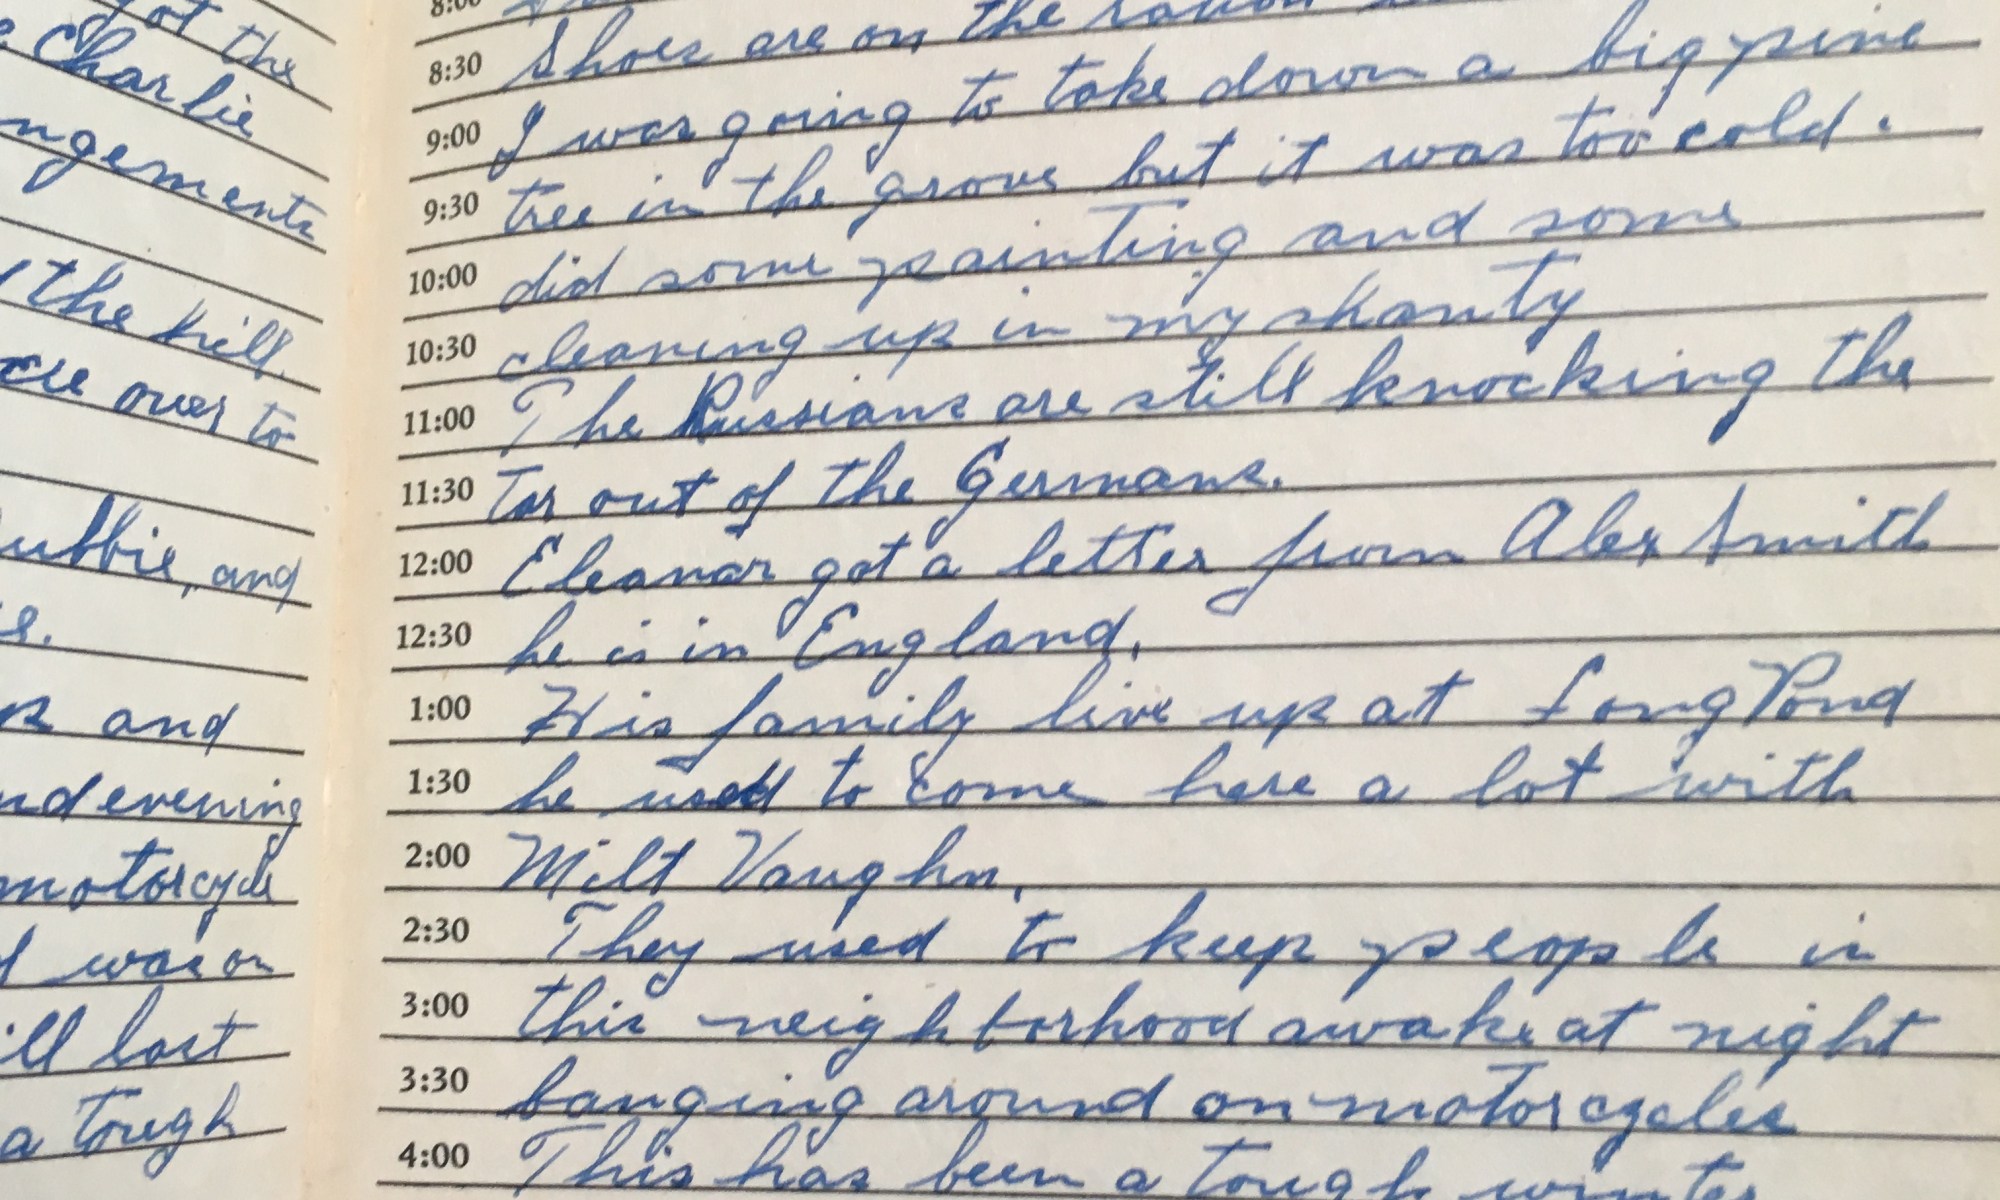 got the
Charlie
ngements
the kill.
over to
ubbie, and
and
nd evening
motorcycle
I was on
ill last
a tough
8:00
8:30 Shoes are on the ration
9:00 I was going to take down a big pine
9:30 tree in the grove but it was too cold.
10:00 did some painting and some
10:30 cleaning up in my shanty
11:00 The Russians are still knocking the
11:30 tar out of the Germans.
12:00 Eleanor got a letter from Alex Smith
12:30 he is in England.
1:00 His family live up at Long Pond
1:30 he used to come here a lot with
2:00 Milt Vaughn.
2:30 They used to keep people in
3:00 this neighborhood awake at night
3:30 banging around on motorcycles
4:00 This has been a tough winter